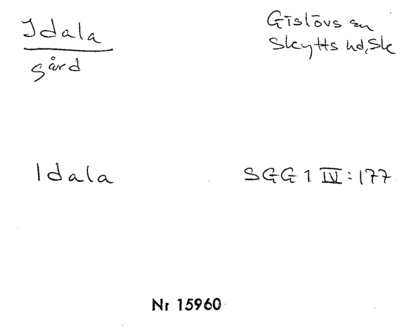 Idala
gård
Gislövs sn
Skytts hd, Sk
Idala
SGG 1 IV:177
Nr 15960